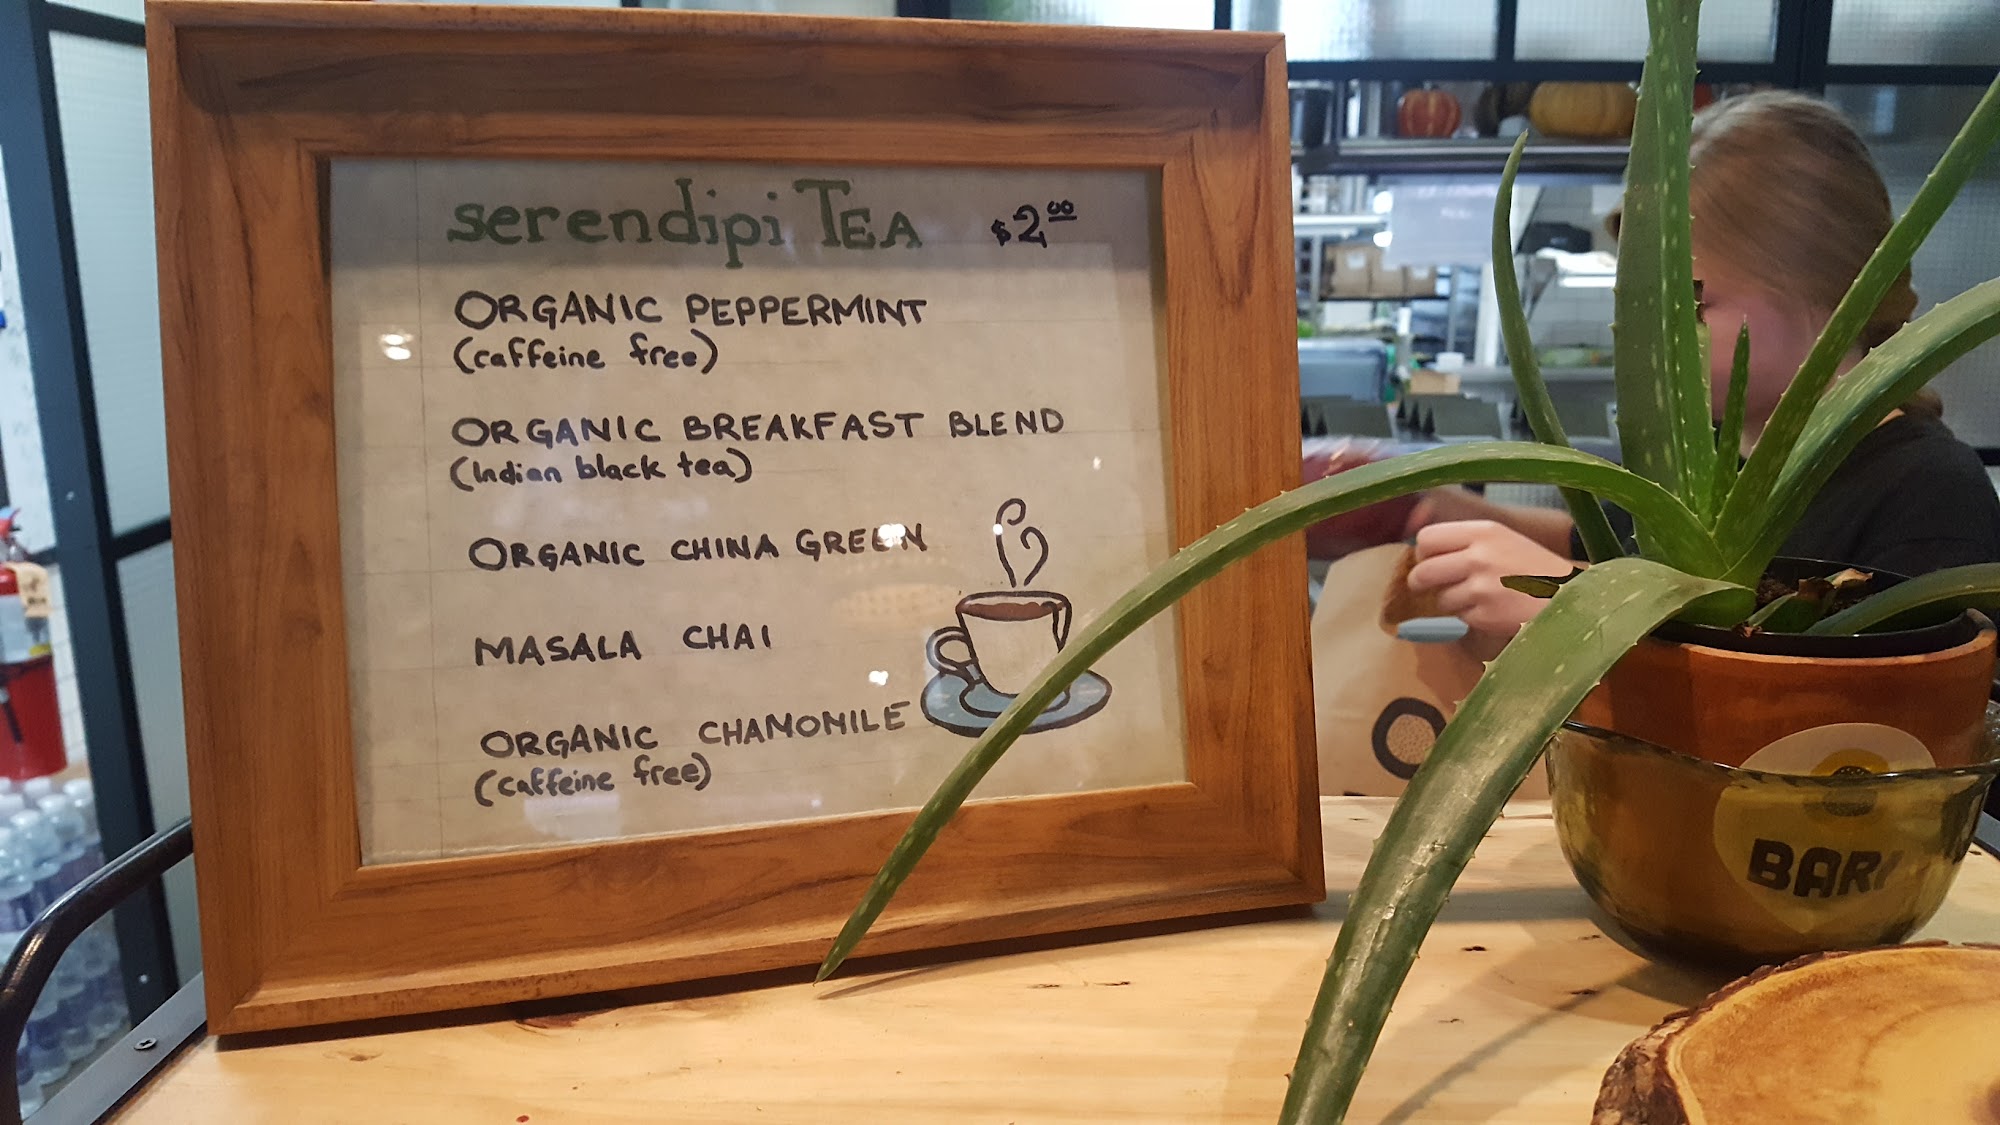 serendipiTEA $2.00
ORGANIC PEPPERMINT
(caffeine free)
ORGANIC BREAKFAST BLEND
(Indian black tea)
ORGANIC CHINA GREEN
MASALA CHAI
ORGANIC CHAMOMILE
(caffeine free)
BARI